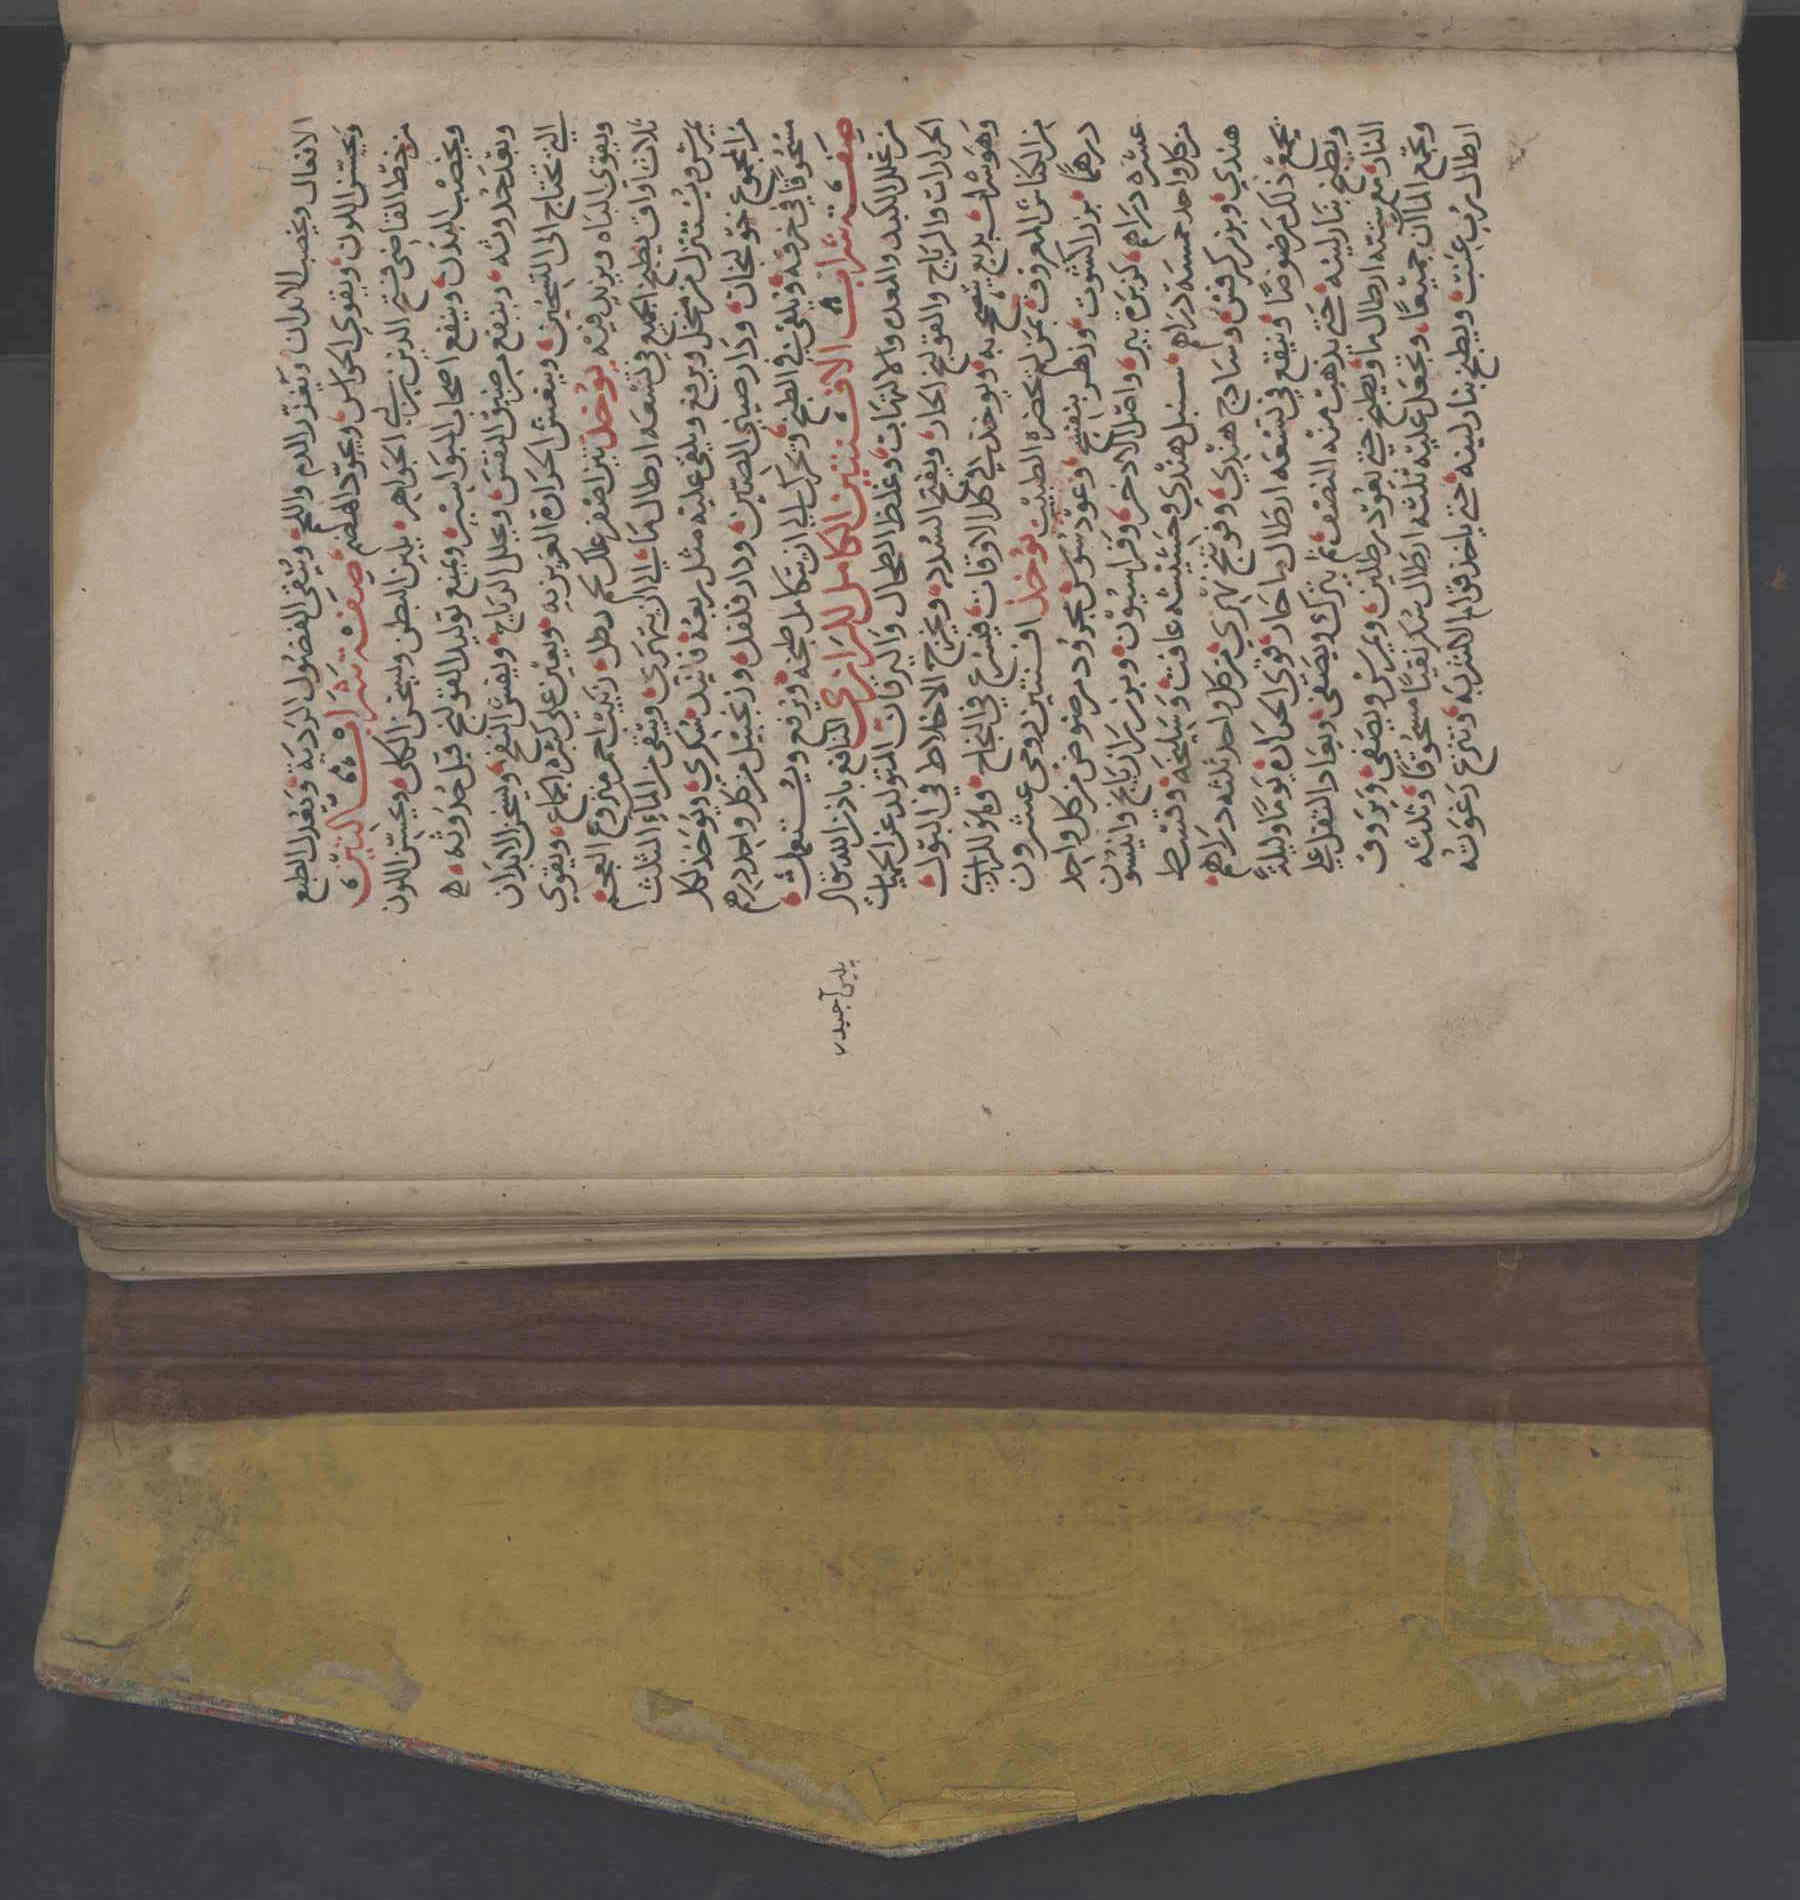 الافعال ويخصب الابدان ويغزر الدم واللحم وينقى الفضول الردية ويعدل الطبع
ويحسن اللون ويقوي الحواس ويجود الهضم صفة شراب التين
من خط القاضى فتح الدين بن ابي الحوافر يلين البطن ويسخن الكلى ويحسن اللون
ويخصب البدن وينفع اصحاب البواسير ويمنع توليد القولنج قبل حدوثه
وبعد حدوثه وينفع من ضيق النفس ويحلل الرياح ويفش النفخ ويسخن الابدان
التي تحتاج الى التسخين وينعش الحرارة الغريزيه ويعين على كثرة الجماع ويقوي
ويقوى الباه ويزيد فيه يؤخذ تين اصفر علك لحم رطل زبيب احمر منزوع العجم
ثلاث اواق يطبخ الجميع في تسعه ارطال ماء الى ان يتهرى ويبقى من الماء الثلث
يمرس ويستنزل من منخل ويرفع ويلقى عليه مثل ربعه فانيد سكري ويؤخذ لكل
من المجموع خولنجان ودار صيني الصين ودار فلفل وزنجبيل من كل واحد درهم
مسحوقا في خرقه ويلقى في الطبخ ويحرك الى ان يتكامل طبخه ويرفع ويستعمل
صفة شراب الافسنتين الكامل للرازي النافع باذن الله تعالى
من غلظ الكبد والمعده والالتهاب وغلظ الطحال واليرقان المتولد عن الحميات
الحارات والرياح والقولنج الحار ويفتح السدد ويخرج الاخلاط في البول
وهو شراب بديع صحيح به ويوخذ في كل الاوقات فيسرع في النجاح وهو للرازي
من الكناش المعروف بمن لا يحضره الطبيب يؤخذ افسنتين رومى عشرون
درهما بزر الكشوت وزهر بنفسج وعود سوس مجرود مرضوض من كل واحد
عشره دراهم كزبرة بير واصل الاذخر وفراسيون وبزر رازيانج وانيسون
من كل واحد خمسه دراهم سنبل هندي وحشيشه غافت وسليخه وقسط
هندي وبزر كرفس وسادج هندي وفوتنج نهري من كل واحد ثلثه دراهم
يجمع ذلك مرضوضا وينقع في تسعه ارطال ماء حار قوي الحراره يوما وليلة
ويطبخ بنار لينه حتى يذهب منه النصف ثم يترك ويصفى ويعاد الثفل على
النار مع سته ارطال ماء ويطبخ حتى يعود رطلين ويمرس ويصفى ويروق
ويجمع الماآن جميعا ويجعل عليه ثلثه ارطال سكر نقيا مسحوقا وثلثه
ارطال رب عنب ويطبخ بنار لينه حتى ياخذ قوام الاشربه وتنزع رغوته